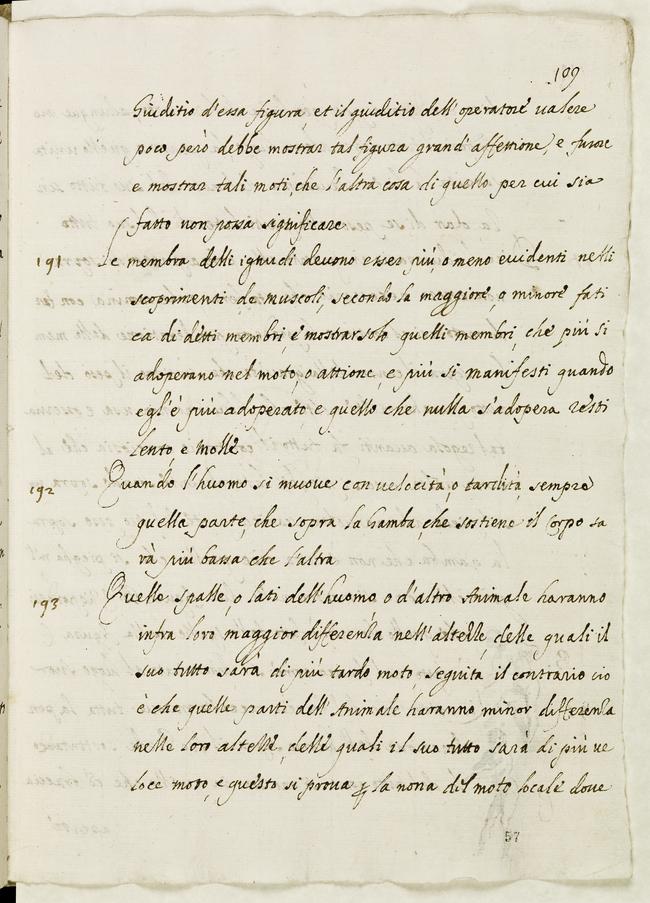 109
Giuditio d'essa figura, et il giuditio dell'operatore valere
poco, però debbe mostrar tal figura grand'affettione, e furore
e mostrar tali moti, che l'altra cosa di quello per cui sia
fatto non possa significare
191 Le membra delli ignudi devono esser più, o meno evidenti nelli
scoprimenti de muscoli, secondo la maggiore, o minore fati
ca di detti membri, e mostrar solo quelli membri, che più si
adoperano nel moto, o attione, e più si manifesti quando
egl'è più adoperato e quello che nulla s'adopera resti
lento, e molle
192 Quando l'huomo si muove con velocità, o tardità, sempre
quella parte, che sopra la Gamba, che sostiene il Corpo sa
rà più bassa che l'altra
193 Quelle spalle, o lati dell'huomo, o d'altro Animale haranno
infra loro maggior differenza nell'altezze, delle quali il
suo tutto sarà di più tardo moto, seguita il contrario cio
è che quelle parti dell'Animale haranno minor differenza
nelle loro altezze, delle quali il suo tutto sarà di più ve
loce moto, e questo si prova ꝑ la nona del moto locale dove
57